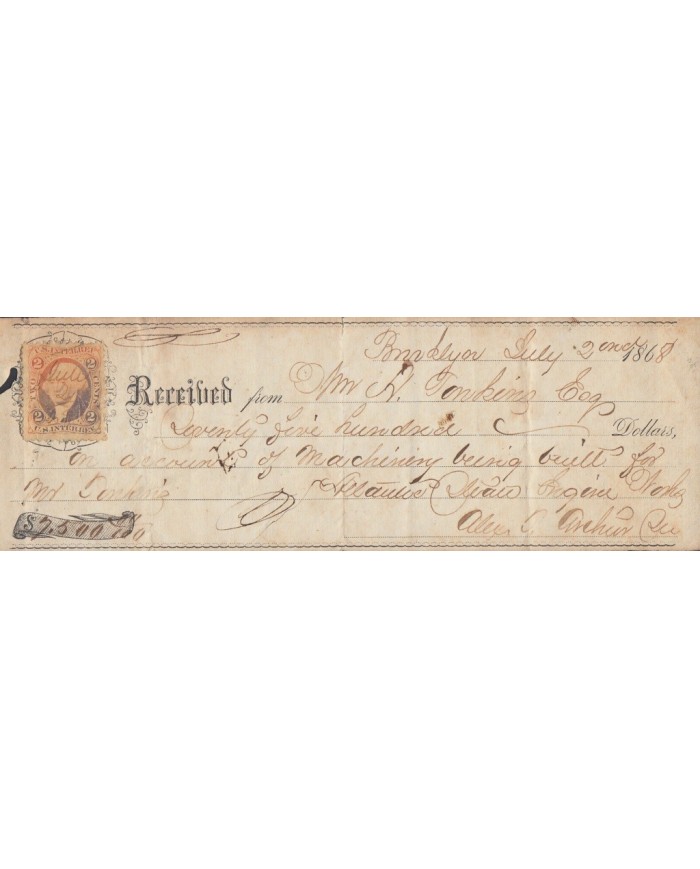 U.S. INTER. REV.
2 2
TWO CENTS
2 2
U.S. INTER. REV.
Brooklyn July 2ond 1868
Received from Wm Tonking Esq
Seventy five hundred Dollars,
on account of Machinery being built for
Mr Tonking Atlantic Steam Engine Works
$7,500 00/100 Alex. C. Arthur Sec